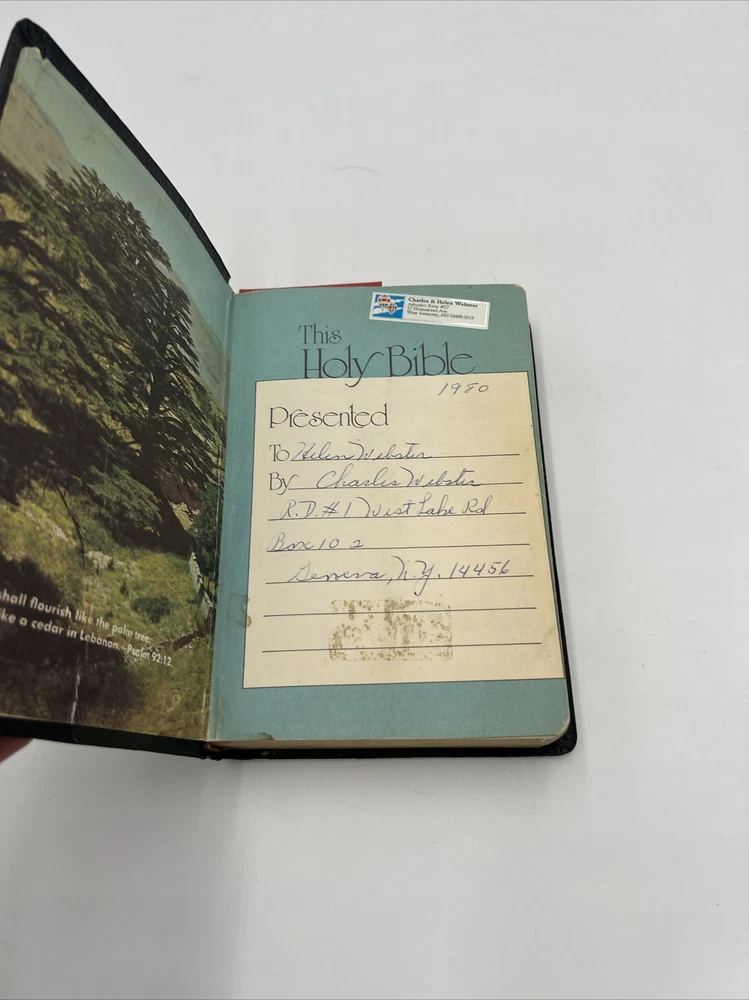 shall flourish like the palm tree:
like a cedar in Lebanon. —Psalm 92:12
Charles & Helen Webster
37 Homestead Ave.
West Swanzey, NH 03469-
This
Holy Bible
1980
Presented
To Helen Webster
By Charles Webster
R.D. #1 West Lake Rd
Box 10 2
Geneva, N.Y. 14456